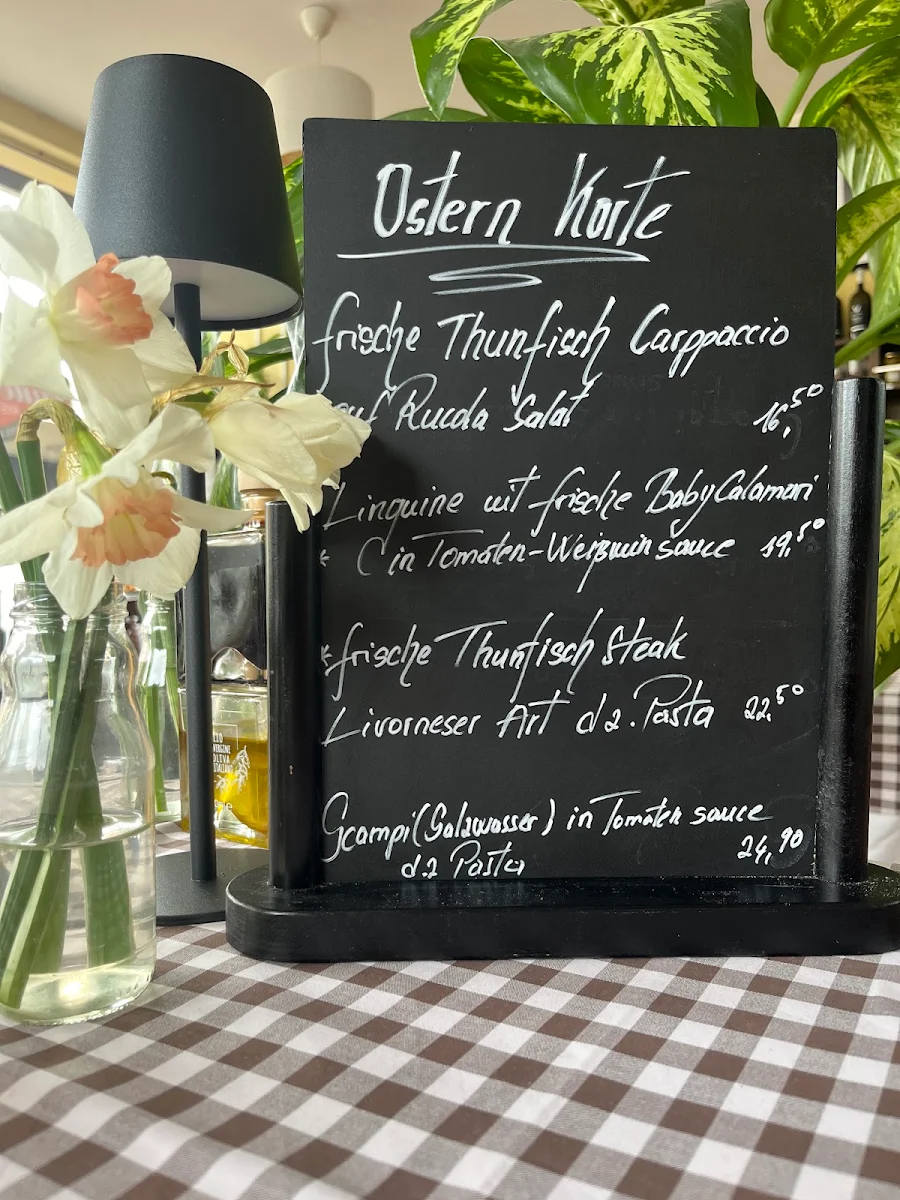 Ostern Karte
frische Thunfisch Carppaccio
auf Rucola Salat 16,50
Linguine mit frische BabyCalamari
* in Tomaten-Weißwein sauce 19,50
*frische Thunfisch Steak
Livorneser Art dz. Pasta 22,50
Scampi (Salzwasser) in Tomaten sauce
24,90
dz Pasta
VERGINE
OLIVA